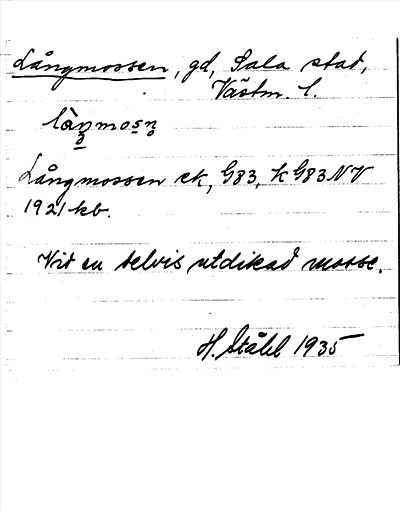 Långmossen, gd, Sala stad,
Västm. l.
làŋmosn̥
Långmossen ek, G83, k G83 NV
1921 kb.
Vid en delvis utdikad mosse.
H. Ståhl 1935